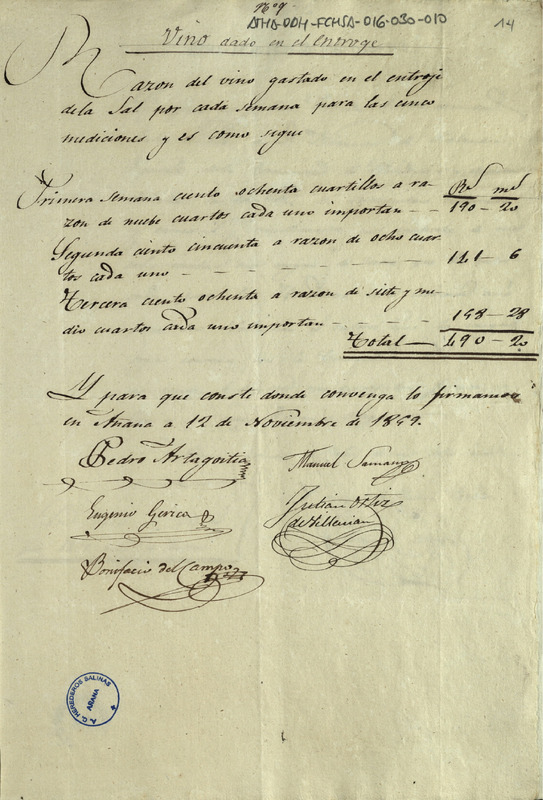 Nº 9
ATHA-DDH-FCHSA-016-030-010
14
Vino dado en el Entroge
Razon del vino gastado en el entroji
de la Sal por cada semana para las cinco
mediciones y es como sigue
Rs ms
Primera semana ciento ochenta cuartillos a ra-
zon de nuebe cuartos cada uno importan 190 - 20
Segunda ciento cincuenta a razon de ocho cuar-
tos cada uno 141 - 6
Tercera ciento ochenta a razon de siete y me-
dio cuartos cada uno importan 158 - 28
Total 490 - 20
Y para que conste donde convenga lo firmamos
en Añana a 12 de Noviembre de 1859.
Pedro Artagoitia
Manuel Samano
Eugenio Gorica
Julian Ortiz
de Villerian
Bonifacio del Campo
A. C. HEREDEROS SALINAS
AÑANA